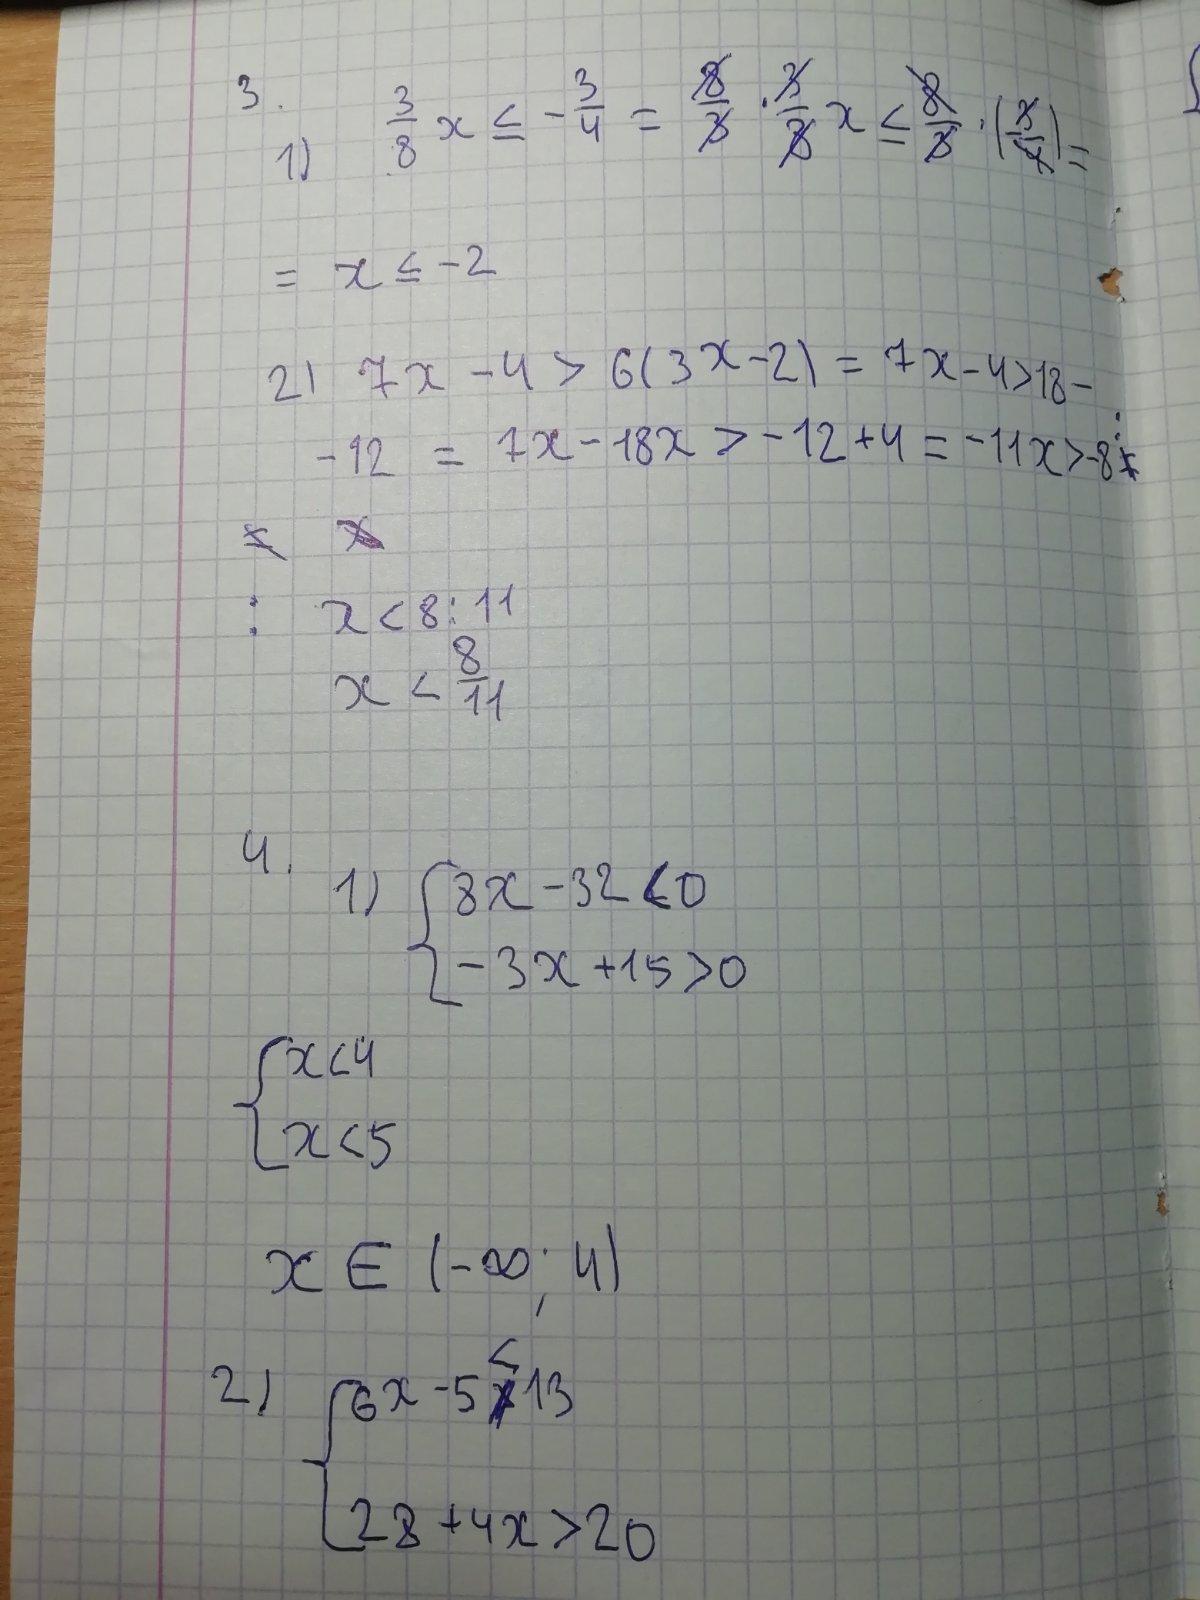 3.
1) 3/8 x ≤ -3/4 = 8/3 · 3/8 x ≤ 8/3 · (3/4) =
= x ≤ -2
2) 7x - 4 > 6(3x - 2) = 7x - 4 > 18 -
-12 = 7x - 18x > -12 + 4 = -11x > -8
: x < 8 : 11
x < 8/11
4.
1) { 8x - 32 < 0
- 3x + 15 > 0
{ x < 4
x < 5
x ∈ (-∞; 4)
2) { 6x - 5 < 13
28 + 4x > 20